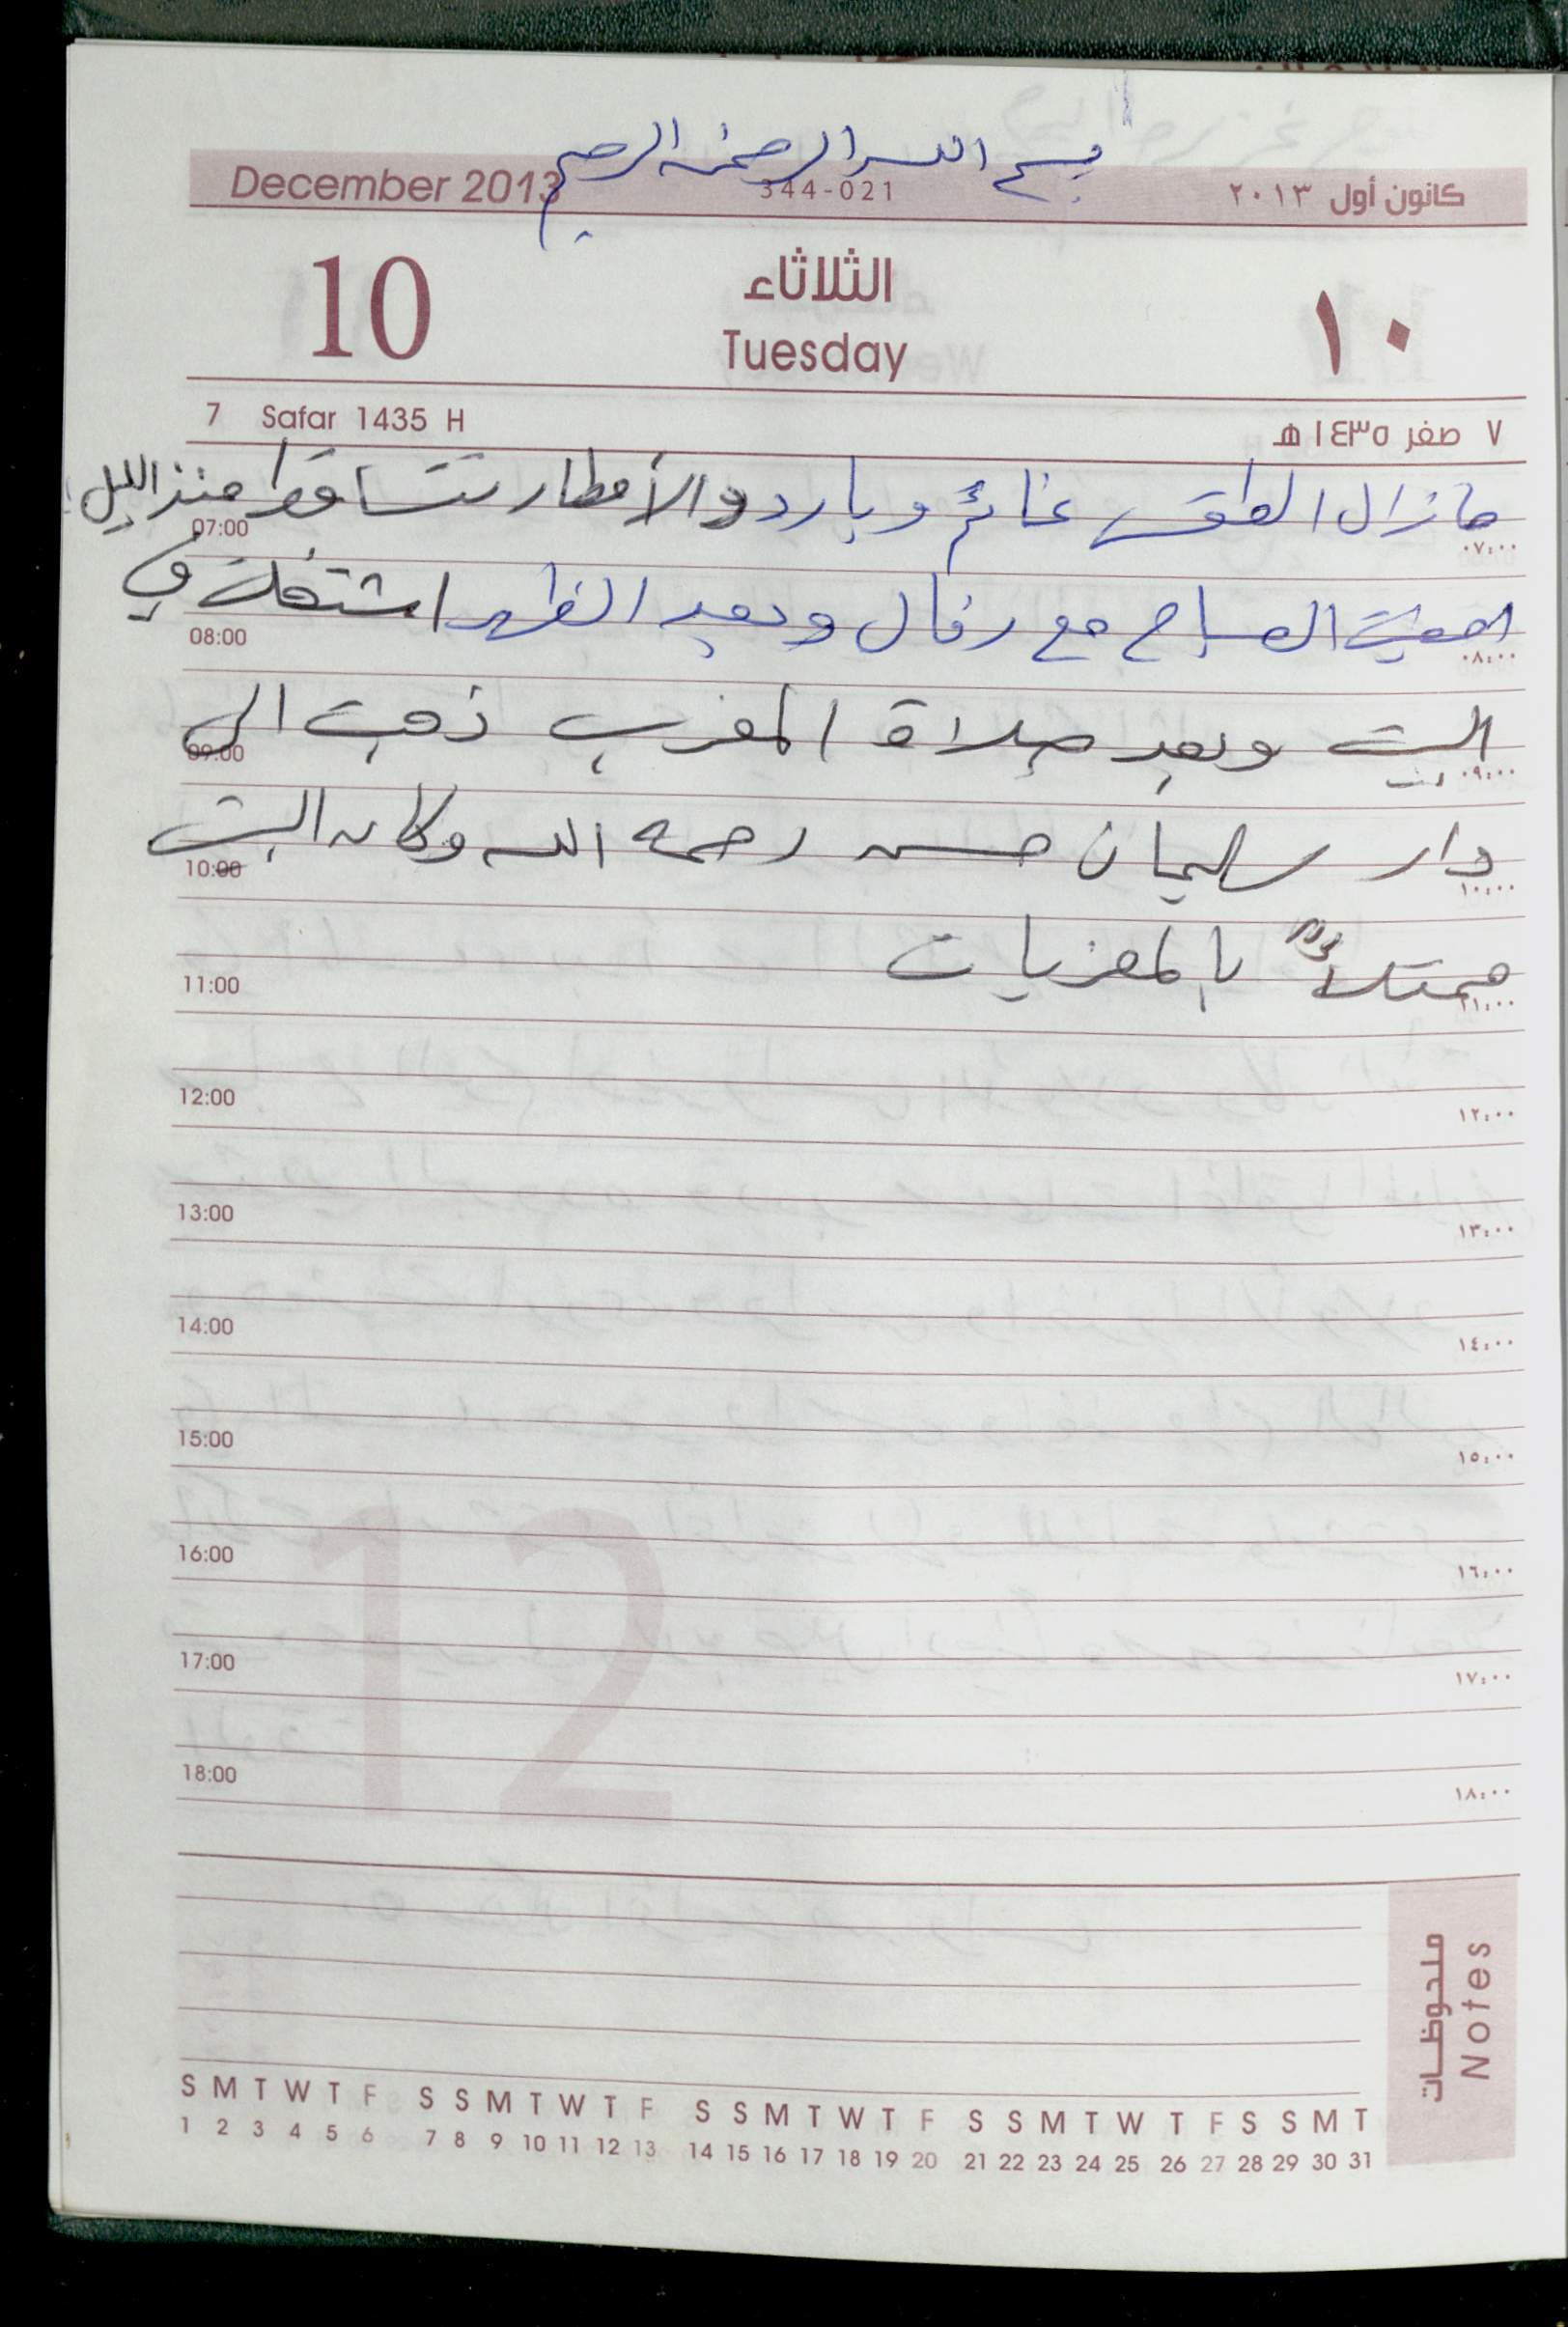 بسم الله الرحمن الرحيم
December 2013 344-021 كانون أول ٢٠١٣
10 الثلاثاء ١٠
Tuesday
7 Safar 1435 H ٧ صفر ١٤٣٥ هـ
مازال الطقس غائم وبارد والأمطار تتساقط منذ الليل
07:00 ٠٧:٠٠
امضيت الصباح مع رفال وبعد الظهر اشتغلت في
08:00 ٠٨:٠٠
البيت وبعد صلاة المغرب ذهبت الى
09:00 ٠٩:٠٠
دار سليمان حسن رحمه الله وكان البيت
10:00 ١٠:٠٠
ممتلأ بالمعزيات
11:00 ١١:٠٠
12:00 ١٢:٠٠
13:00 ١٣:٠٠
14:00 ١٤:٠٠
15:00 ١٥:٠٠
16:00 ١٦:٠٠
12
17:00 ١٧:٠٠
18:00 ١٨:٠٠
ملحوظات
Notes
S M T W T F S S M T W T F S S M T W T F S S M T W T F S S M T
1 2 3 4 5 6 7 8 9 10 11 12 13 14 15 16 17 18 19 20 21 22 23 24 25 26 27 28 29 30 31